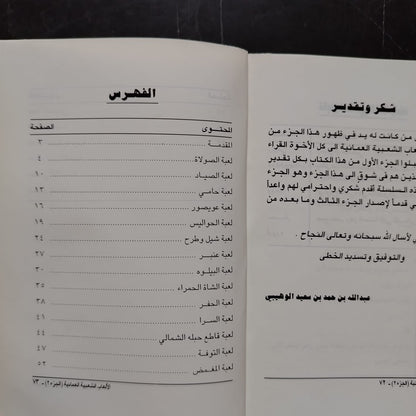 شكر وتقدير
من كانت له يد في ظهور هذا الجزء من
الشعبية العمانية الى كل الأخوة القراء
الجزء الأول من هذا الكتاب بكل تقدير
هم في شوق الى هذا الجزء وهو الجزء
هذه السلسلة أقدم شكري واحترامي لهم واعداً
قدماً لإصدار الجزء الثالث وما بعده من
لأسال الله سبحانه وتعالى النجاح .
والتوفيق وتسديد الخطى
عبدالله بن حمد بن سعيد الوهيبي
عمانية (الجزء٢) ـ ٧٢
الفهرس
المحتوى الصفحة
المقدمة ٣
لعبة الصولاة ٤
لعبة الصياد ١٠
لعبة حامي ١٣
لعبة عويصور ١٦
لعبة الحواليس ١٩
لعبة شيل وطرح ٢٤
لعبة عنبر ٢٧
لعبة البيلوه ٣٠
لعبة الشاة الحمراء ٣٥
لعبة الحفر ٣٨
لعبة السرا ٤١
لعبة قاطع حبله الشمالي ٤٤
لعبة التوفة ٤٧
لعبة المغمض ٥٢
الألعاب الشعبية العمانية (الجزء٢) ـ ٧٣